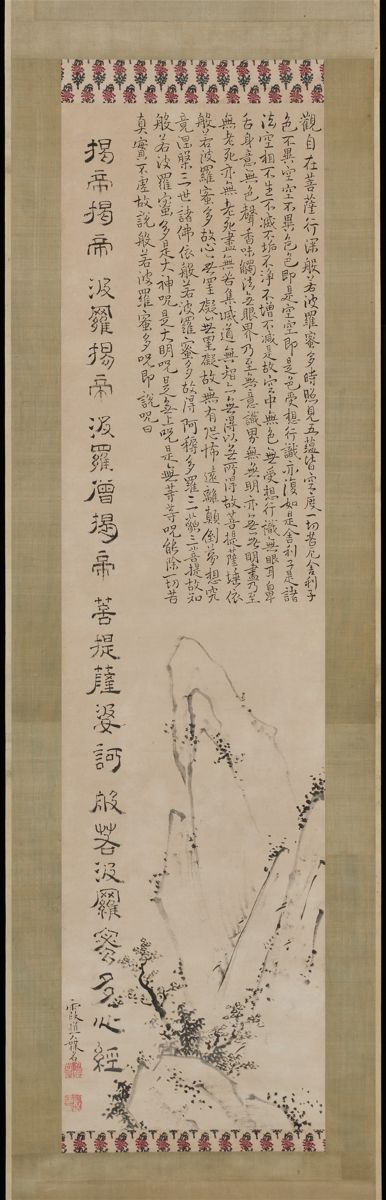 觀自在菩薩行深般若波羅蜜多時照見五蘊皆空度一切苦厄舍利子
色不異空空不異色色即是空空即是色受想行識亦復如是舍利子是諸
法空相不生不滅不垢不淨不增不減是故空中無色無受想行識無眼耳鼻
舌身意無色聲香味觸法無眼界乃至無意識界無無明亦無無明盡乃至
無老死亦無老死盡無苦集滅道無智亦無得以無所得故菩提薩埵依
般若波羅蜜多故心無罣礙無罣礙故無有恐怖遠離顛倒夢想究
竟涅槃三世諸佛依般若波羅蜜多故得阿耨多羅三藐三菩提故知
般若波羅蜜多是大神呪是大明呪是無上呪是無等等呪能除一切苦
真實不虛故說般若波羅蜜多呪即說呪曰
揭帝揭帝波羅揭帝波羅僧揭帝菩提薩婆訶般若波羅蜜多心經
霞道人無名